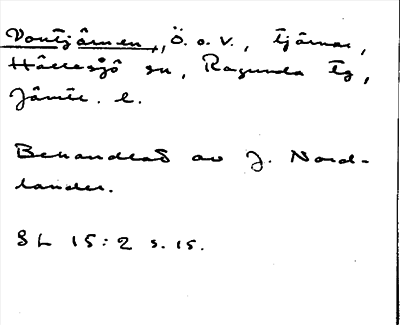 Vontjärnen, Ö. o. V., tjärnar,
Hällesjö sn, Ragunda tg,
Jämtl. l.
Behandlad av J. Nord-
lander.
SL 15:2 s. 15.